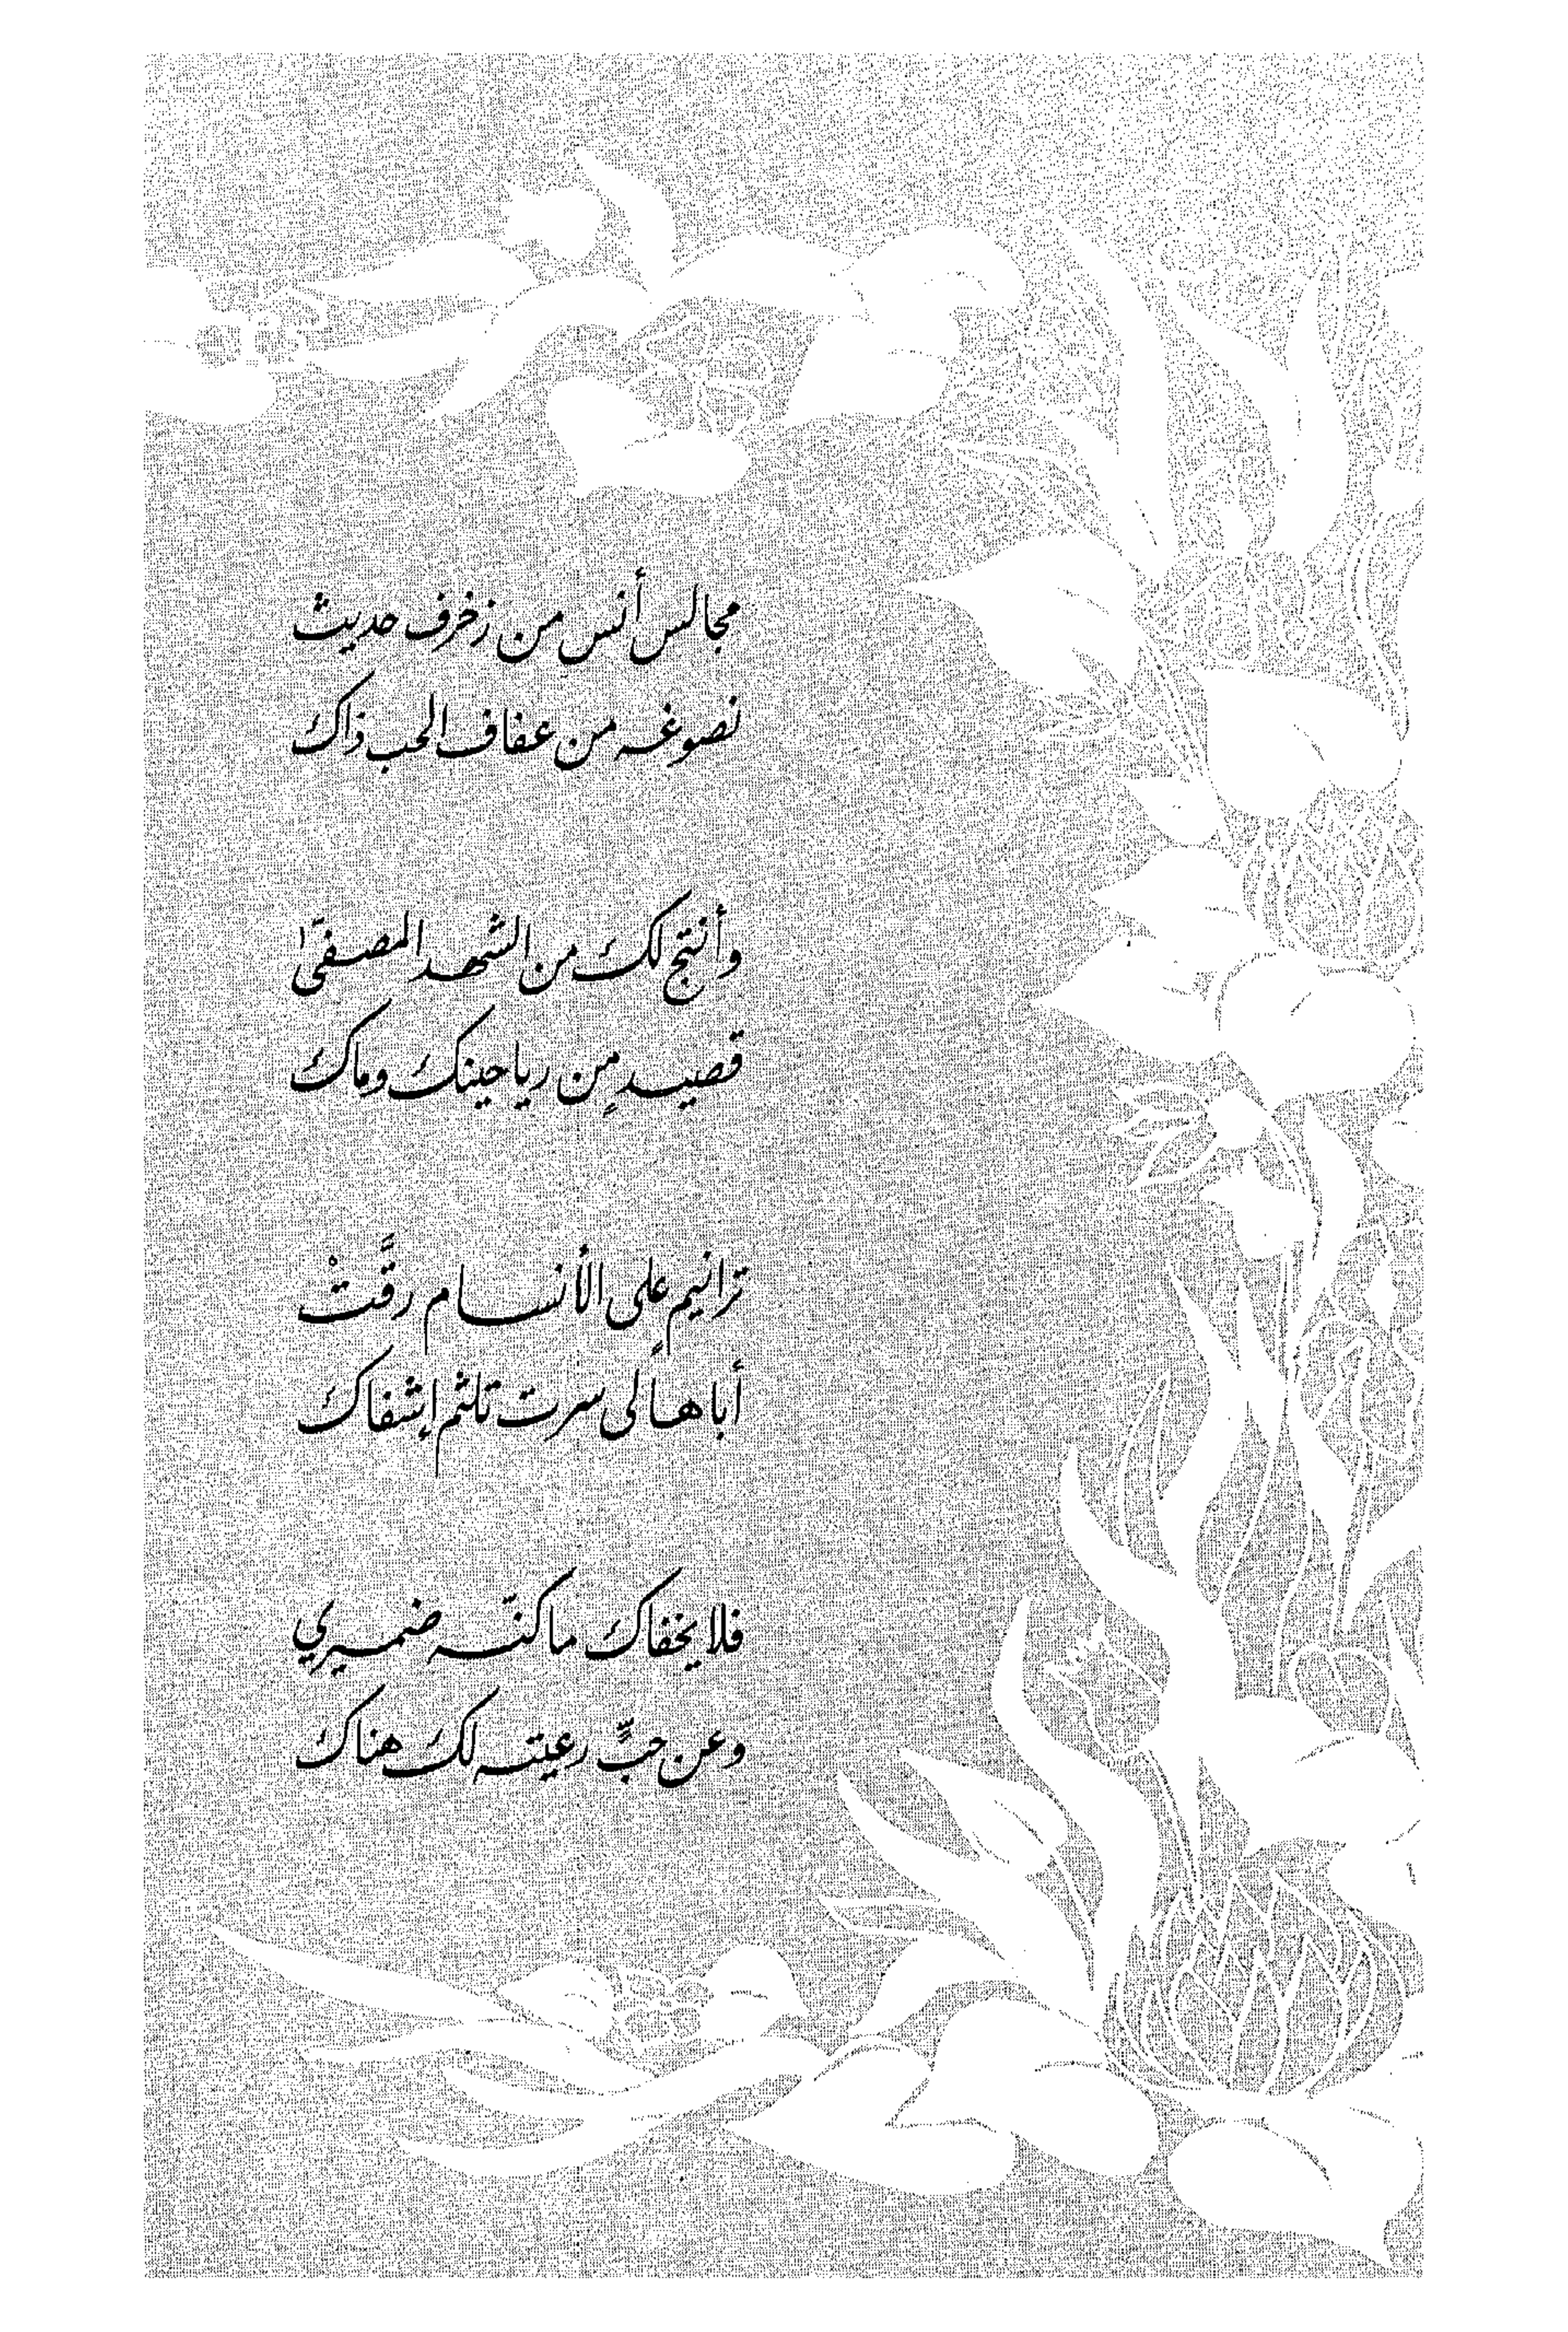 مجالس أنس من زخرف حديث
نصوغه من عفاف الحب ذاك
وأنتج لك من الشهد المصفىّ
قصيدٍ من رياحينك وماك
ترانيم على الأنسام رقَّتْ
أباهاً لى سرت تلثم إشفاك
فلا يخفاك ما كنّه ضميري
وعن حبٍّ رعيته لك هناك